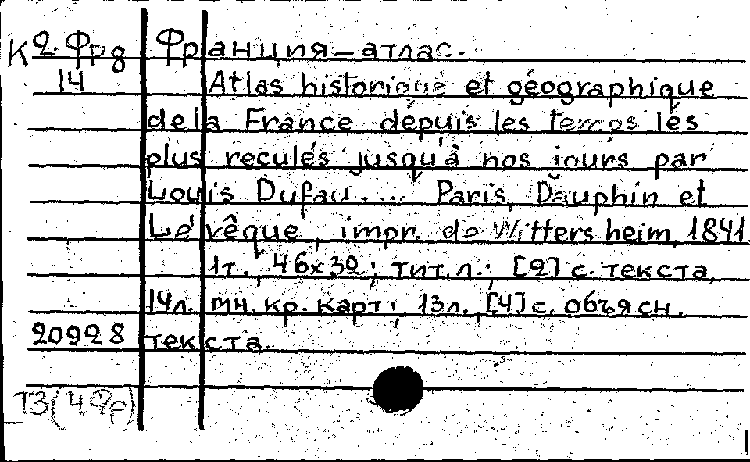 К 2 Фр 8 Франция — атлас.
14 Atlas historique et géographique
de la France depuis les temps les
plus reculés jusqu'à nos jours par
Louis Dufau.... Paris, Dauphin et
Levêque, impr. de Wittersheim, 1841
1т., 46x30; тит. л.; [2] с. текста,
14л. мн. кр. карт; 13л., [4] с. объясн.
20928 текста.
T3(4Фр)